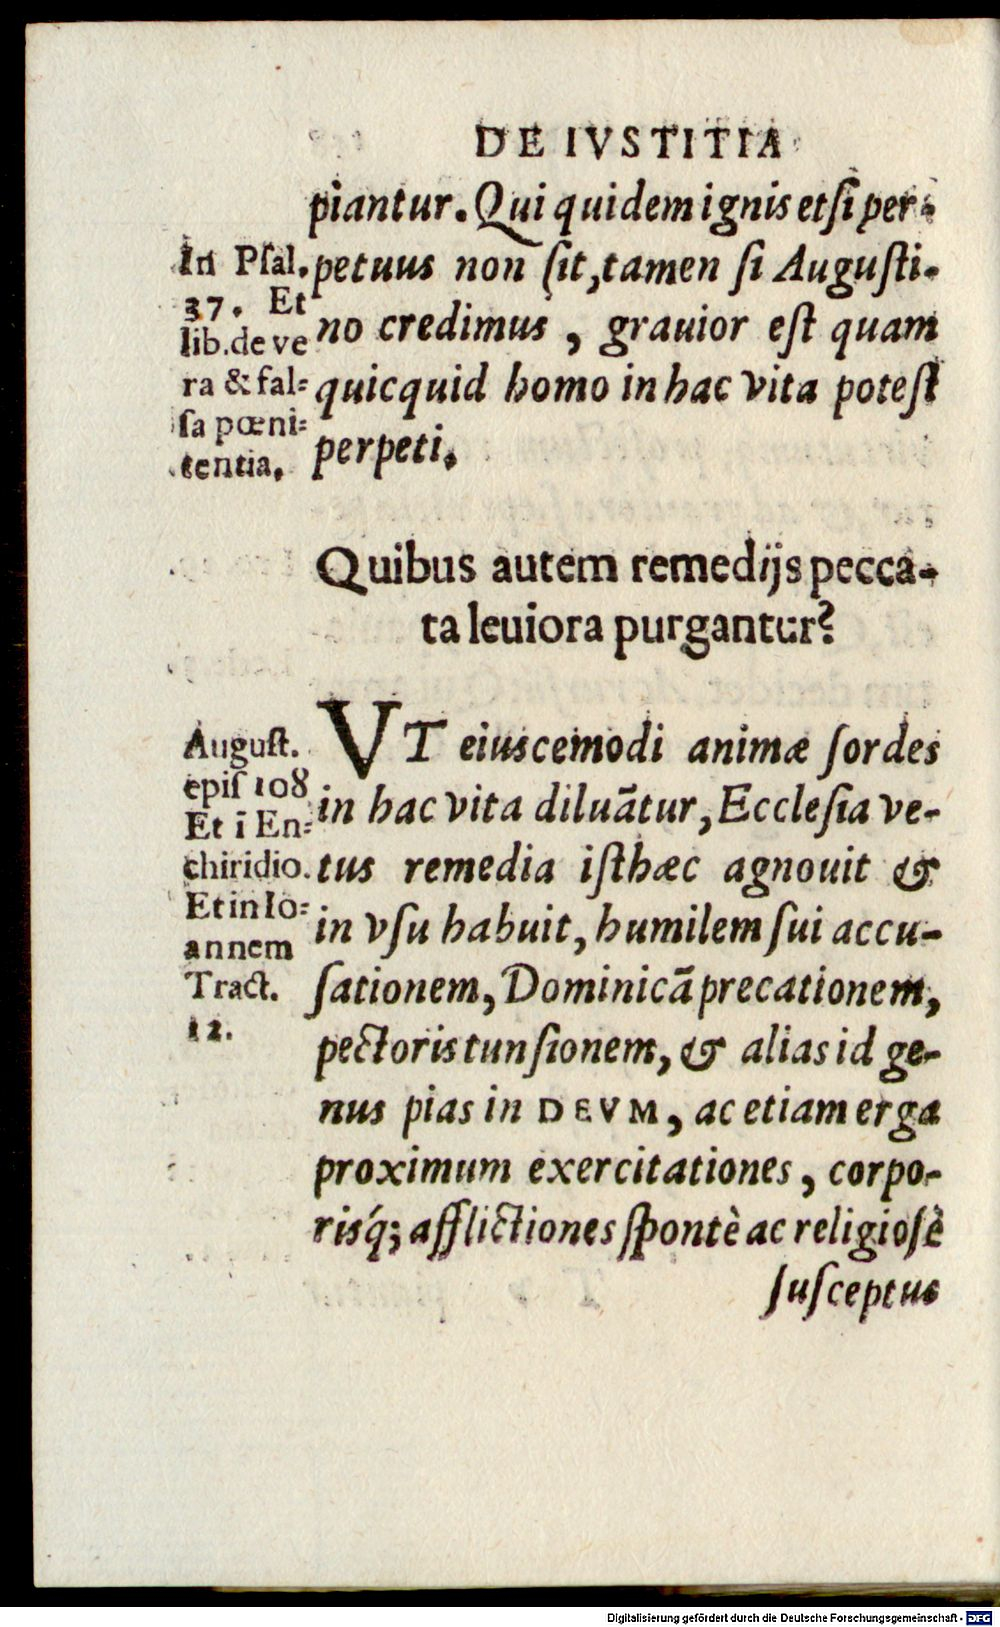 DE IVSTITIA
piantur. Qui quidem ignis etſi per-
petuus non ſit, tamen ſi Auguſti-
no credimus, grauior eſt quam
quicquid homo in hac vita poteſt
perpeti.
In Pſal.
37. Et
lib. de ve
ra & fal-
ſa pœni-
tentia.
Quibus autem remedijs pecca-
ta leuiora purgantur?
VT eiuscemodi animæ ſordes
in hac vita diluãtur, Eccleſia ve-
tus remedia iſthæc agnouit &
in vſu habuit, humilem ſui accu-
ſationem, Dominicã precationem,
pectoris tunſionem, & alias id ge-
nus pias in DEVM, ac etiam erga
proximum exercitationes, corpo-
risq́; afflictiones ſpontè ac religioſè
ſuſceptus
Auguſt.
epiſ 108
Et ĩ En-
chiridio.
Et in Io-
annem
Tract.
12.
Digitalisierung gefördert durch die Deutsche Forschungsgemeinschaft - DFG